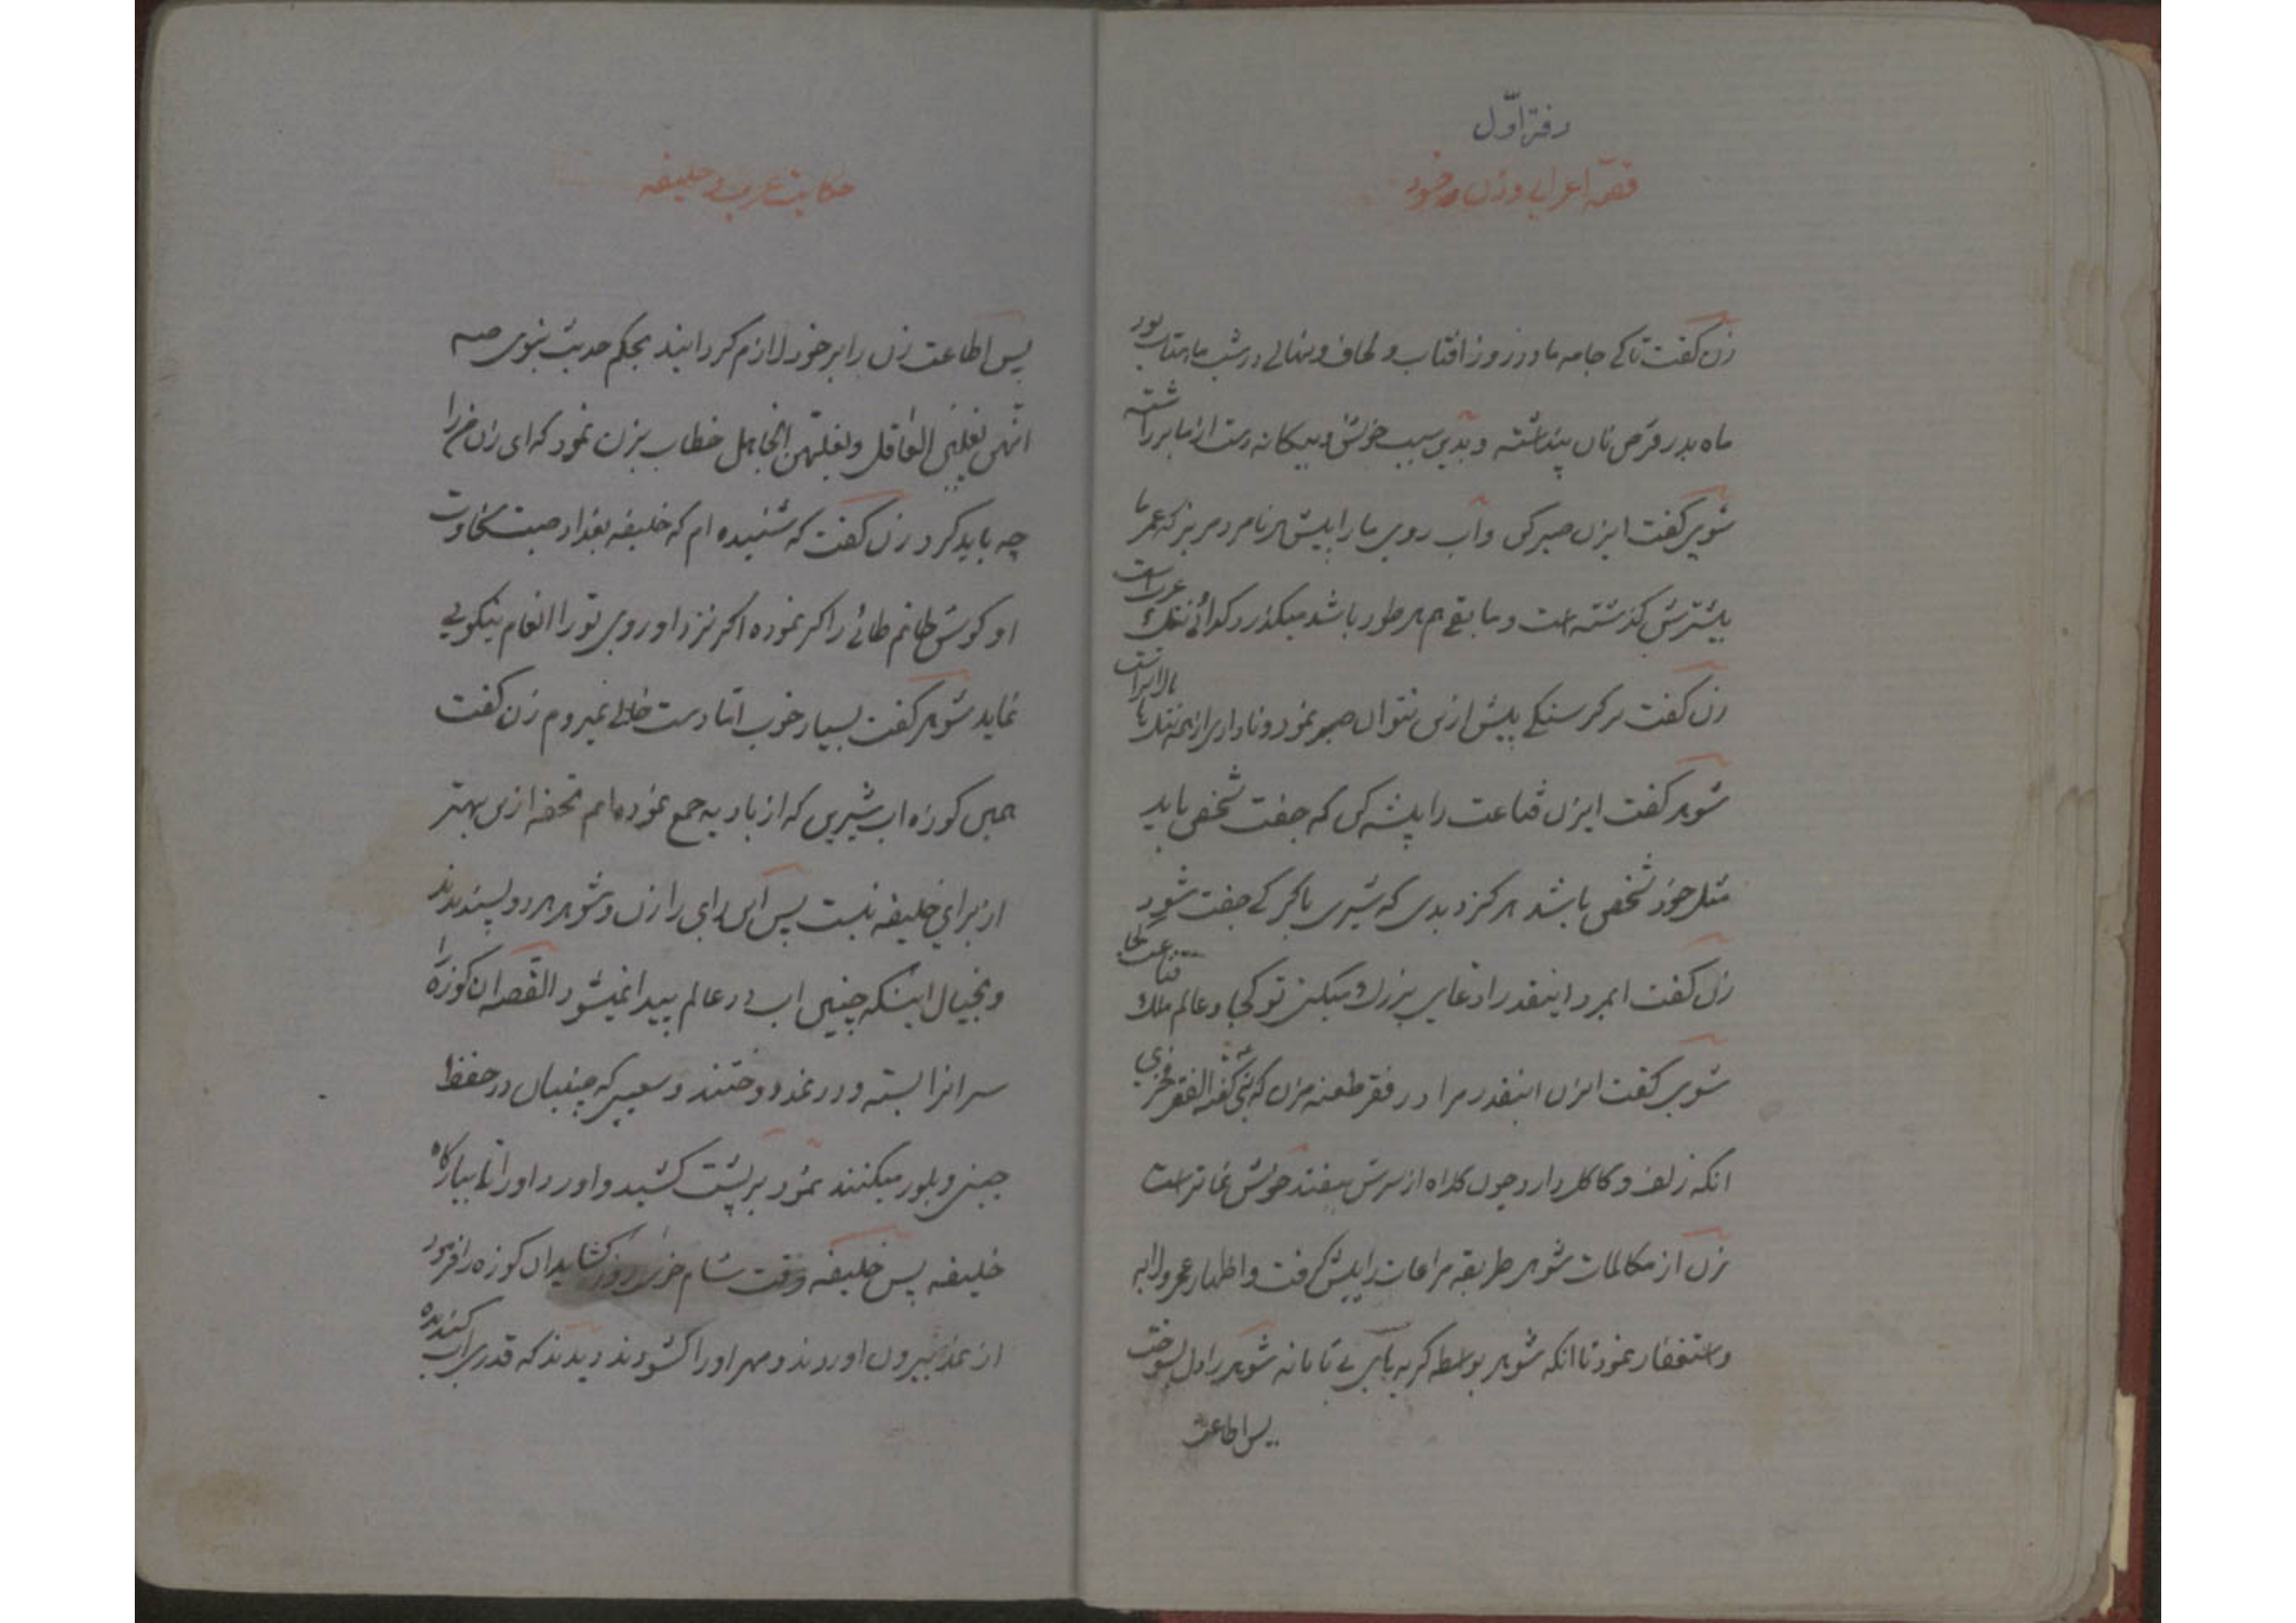 دفتر اوّل
قصّه اعرابی و زن او خود
زن گفت تا کی جامه ما در روز افتاب و لحاف و نهالی در شب ماهتاب بود
ماه بدر قرص نان پنداشته و بدین سبب خویش و بیکانه دست از ما برداشته
شوی گفت ایزن صبر کن و آب روی ما را پیش هر نامرد مریز که عمر ما
بیشترش کذشته است و مابقی هم هر طور باشد میکذرد کدائی ننک عرب است
زن گفت بر کرسنکی پیش ازین نتوان صبر نمود و ناداری از همه ننکها بالاتر است
شوهر کفت ایزن قناعت را پیشه کن که جفت شخص باید
مثل خود شخص باشد هرکز دیدی که شیری با کرکی جفت شود
زن کفت ایمرد اینقدر ادعای بزرک میکنی تو کجا و عالم ملک قناعت کجا
شوی کفت ایزن اینقدر مرا در فقر طعنه مزن که نبی گفته الفقر فخری
انکه زلف و کاکل دارد چون کلاه از سرش بیفتد خوش نماتر است
زن از مکالمات شوهر طریقه مراعات را پیش کرفت و اظهار عجز و لابه
و استغفار نمود تا انکه شوهر بواسطه کریه های بی تابانه شوهر را دل بسوخت
پس اطاعت
حکایت عرب و خلیفه
پس اطاعت زن را بر خود لازم کردانید بحکم حدیث نبوی صه
انّهن یغلبن العاقل و یغلبهن الجاهل خطاب بزن نمود که ای زن مرا
چه باید کرد زن کفت که شنیده ام که خلیفه بغداد صیت سخاوت
او کوش حاتم طائی را کر نموده اکر نزد او روی تو را انعام نیکویی
نماید شوهر کفت بسیار خوب امّا دست خالی نمیروم زن کفت
همین کوزه اب شیرین که از بادیه جمع نموده ایم تحفه ازین بهتر
از برای خلیفه نیست پس این رای را زن و شوهر هر دو پسندیدند
و بخیال اینکه چنین اب در عالم پیدا نمیشود القصّه ان کوزه را
سر انرا بسته و در نمد دوختند و سعیی که چینیان در حفظ
چینی و بلور میکنند نمود بر پشت کشید و اورد او را تا ببارکاه
خلیفه پس خلیفه وقت شام کشاید ان کوزه را فرمود
از نمد بیرون اوردند و مهر او را کشودند دیدند که قدری اب کندیده